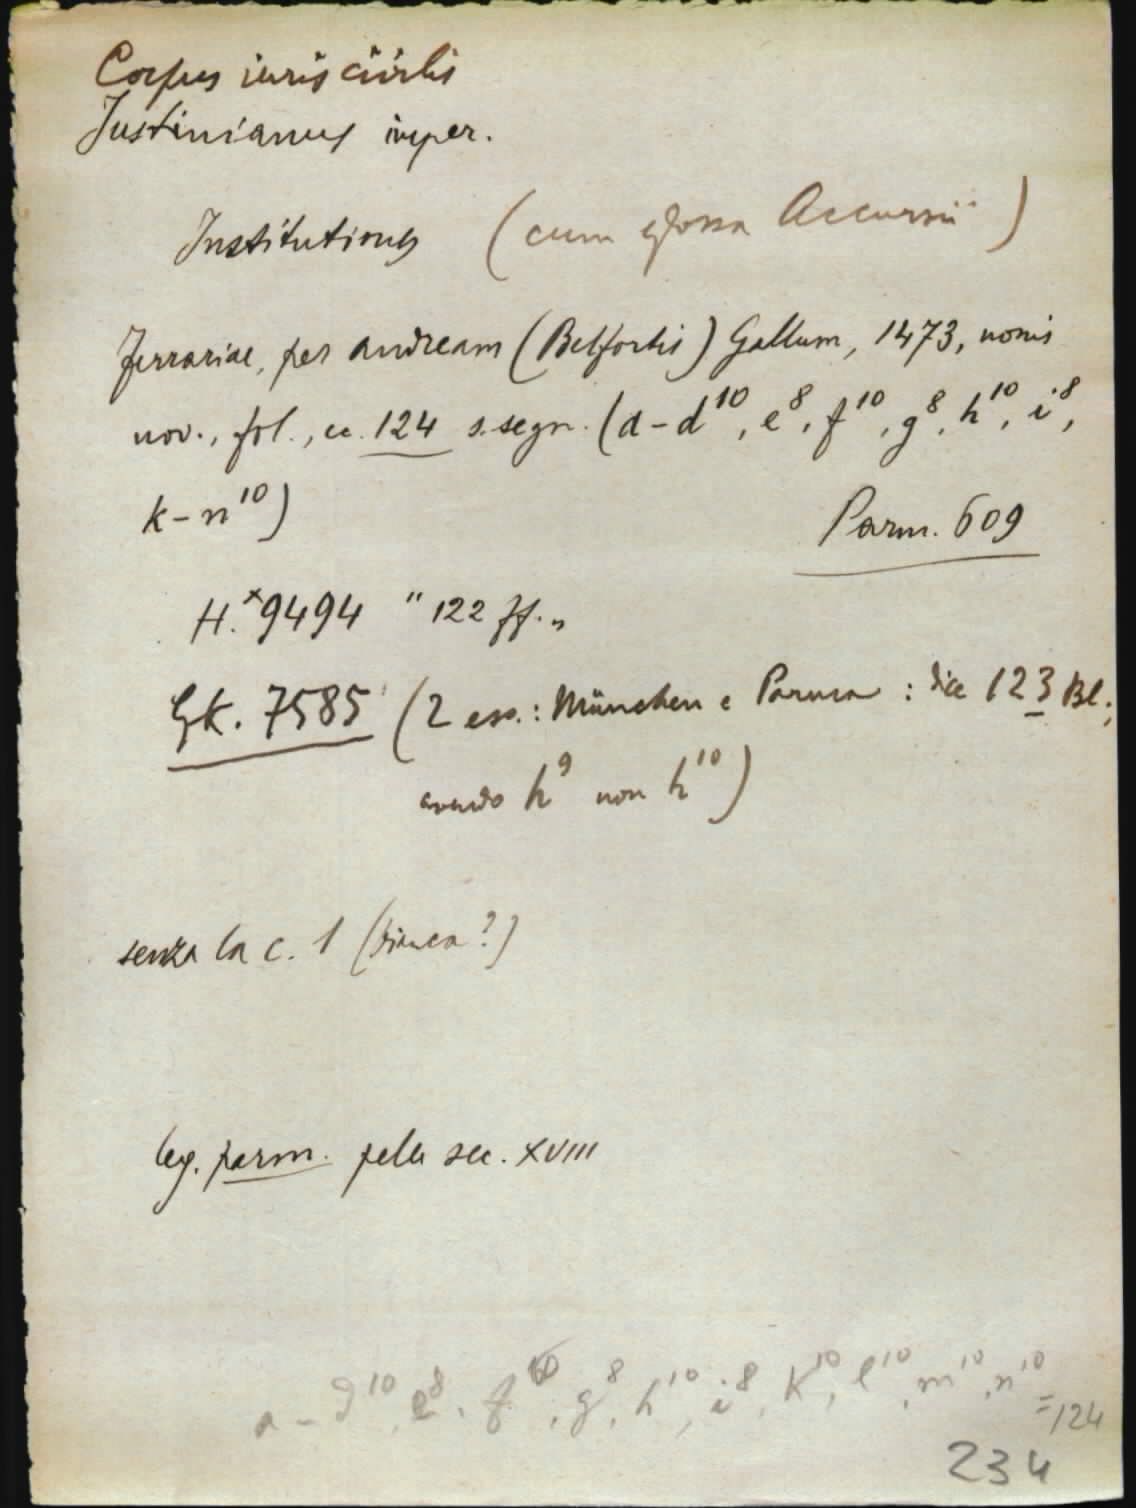 Corpus iuris civilis
Justinianus imper.
Institutiones (cum glossa Accursii)
Ferrariae, per Andream (Belfortis) Gallum, 1473, nonis
nov., fol., cc. 124 s. segn. (a-d¹⁰, e⁸, f¹⁰, g⁸, h¹⁰, i⁸,
k-n¹⁰)
Parm. 609
H.ˣ9494 " 122 ff. "
GK. 7585 (2 es.: München e Parma: dice 123 Bl.;
avendo h⁹ non h¹⁰)
senza la c. 1 (bianca?)
leg. parm. pelle sec. XVIII
a-d¹⁰, e⁸, f¹⁰, g⁸, h¹⁰, i⁸, K¹⁰, l¹⁰, m¹⁰, n¹⁰
=124
234